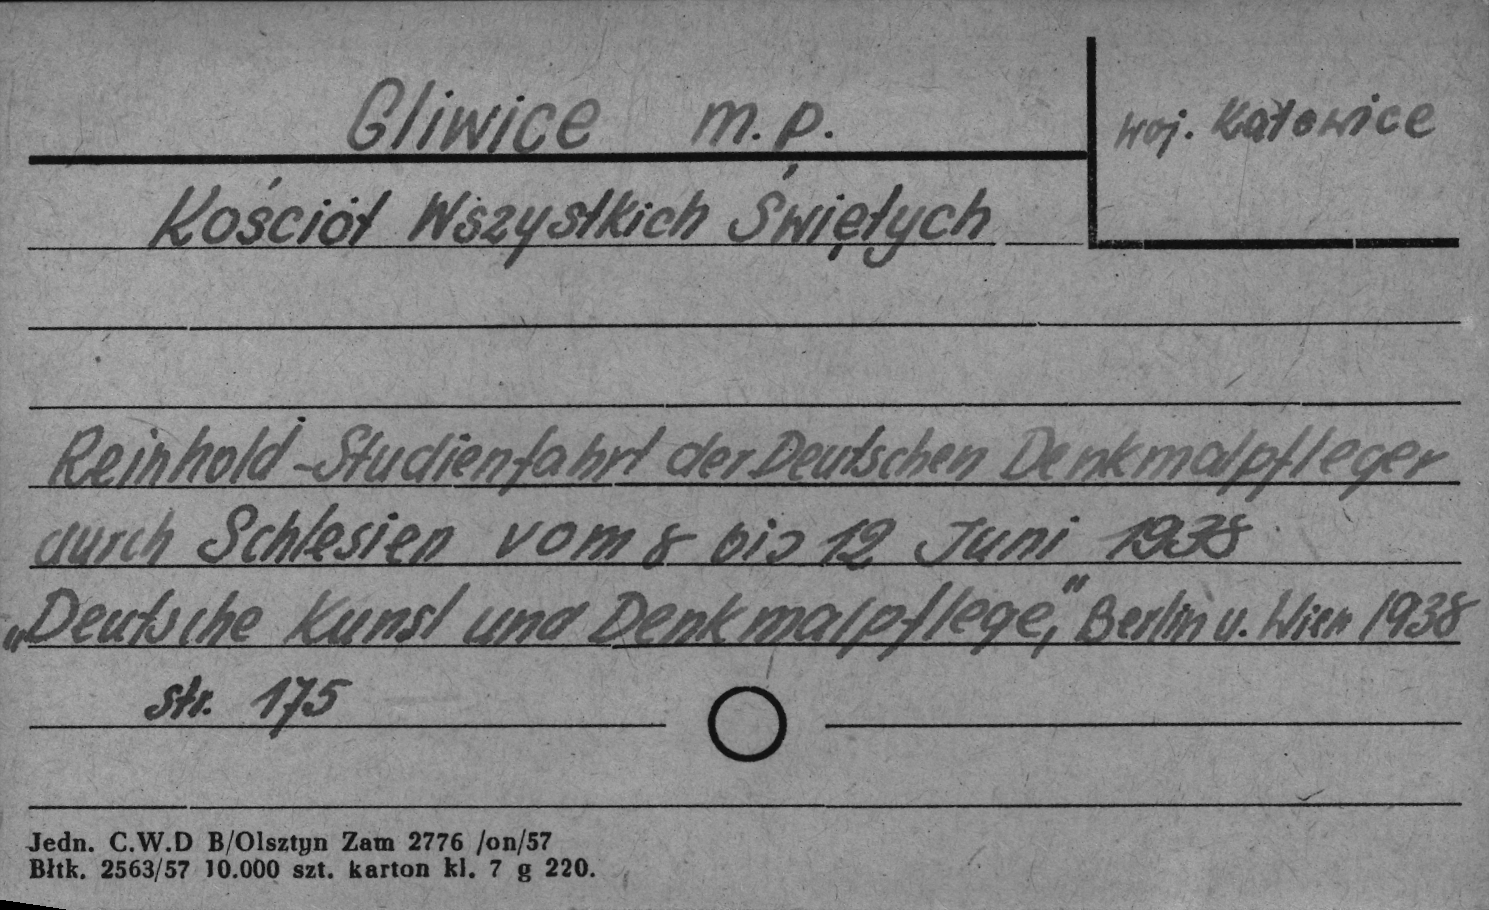 Gliwice m.p.
woj. Katowice
Kościół Wszystkich Świętych
Reinhold-Studienfahrt der Deutschen Denkmalpfleger
durch Schlesien vom 8 bis 12 Juni 1938
„Deutsche Kunst und Denkmalpflege," Berlin u. Wien 1938
str. 175
Jedn. C.W.D B/Olsztyn Zam 2776 /on/57
Błtk. 2563/57 10.000 szt. karton kl. 7 g 220.